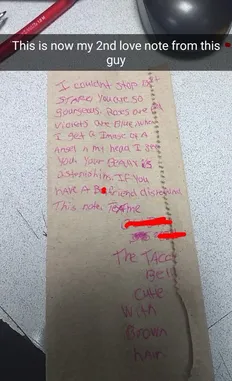 This is now my 2nd love note from this
guy
I couldn't stop
You are so
gourgeous. Roses are
Violets are Blue, when
I get a Image of a
Angel in my head I see
you. Your Beauty is
If you
Have A friend disregard
This note. me
The TACO
Bell
Cute
With
Brown
hair